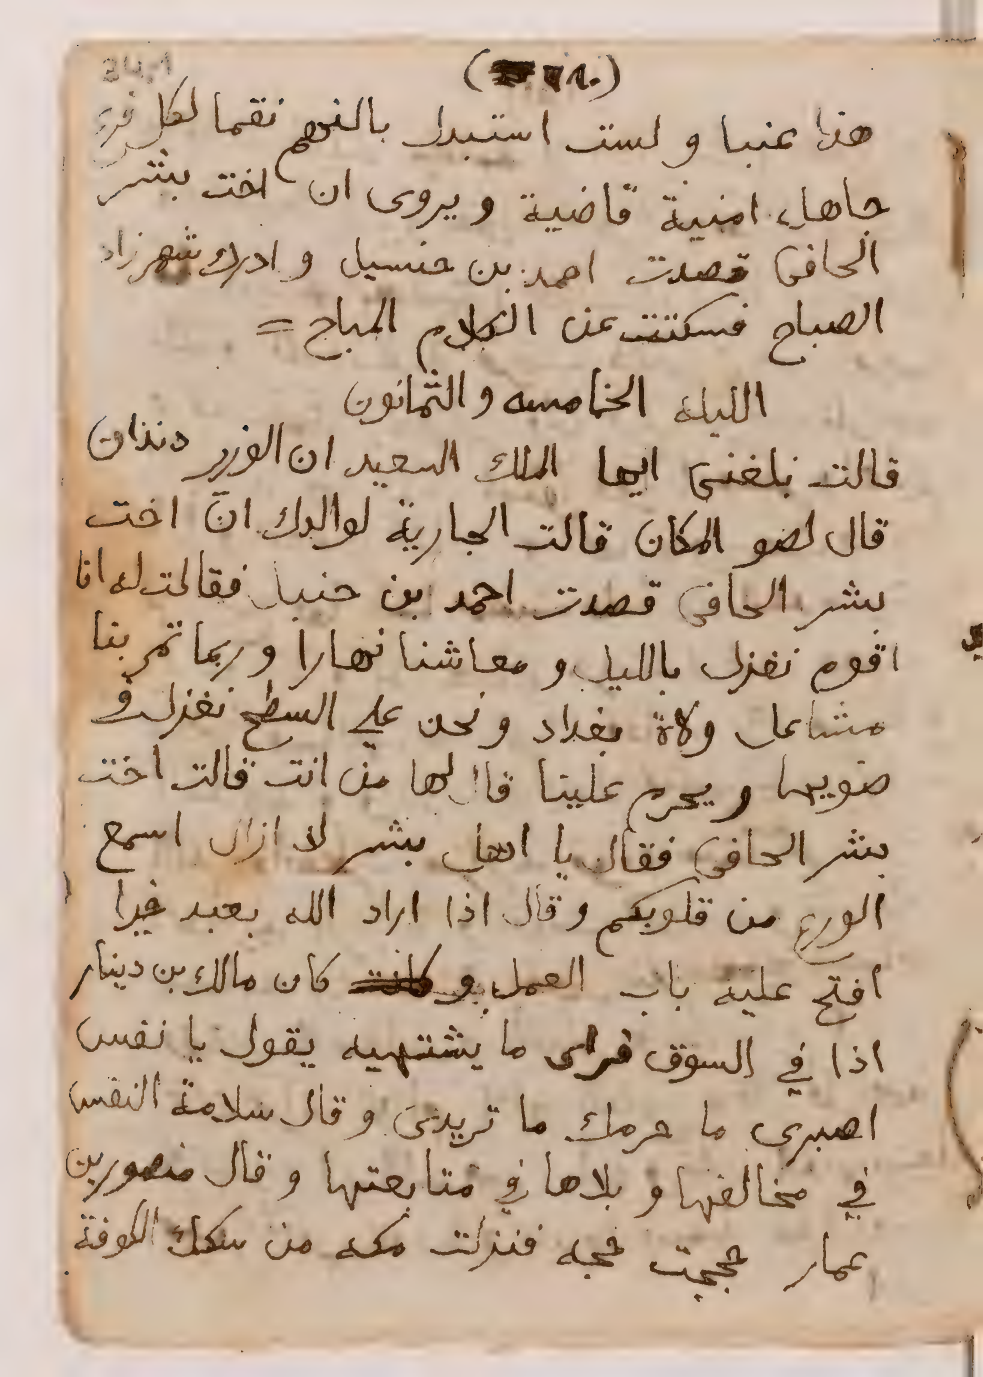 هذا عنبا و لست استبدل بالنعم نقما لكل
جاهل امنية قاضية و يروى ان اخت بشر
الحافى قصدت احمد بن حنسبل و ادرك شهرزاد
الصباح فسكتت عن الكلام المباح =
الليلة الخامسه و الثمانون
قالت بلغنى ايها الملك السعيد ان الوزير دندان
قال لضو المكان قالت الجارية لوالدك انّ اخت
بشر الحافى قصدت احمد بن حنبل فقالت له انا
قوم نغزل بالليل و معاشنا نهارا و ربما تمر بنا
مشاعل ولاة بغداد و نحن على السطح نغزل فى
ضويها و يحرم علينا قال لها من انت قالت اخت
بشر الحافى فقال يا اهل بشر لا ازال اسمع
الورع من قلوبكم و قال اذا اراد الله بعبد خيرا
افتح عليه باب العمل و كان مالك بن دينار
اذا في السوق فراى ما يشتهيه يقول يا نفس
اصبرى ما حرمك ما تريدى و قال سلامة النفس
في مخالفها و بلاها في متابعتها و قال منصور بن
عمار حججت حجه فنزلت مكه من سكك الكوفة